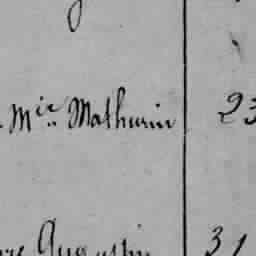 Mie Mathurin 23
Augustin 31